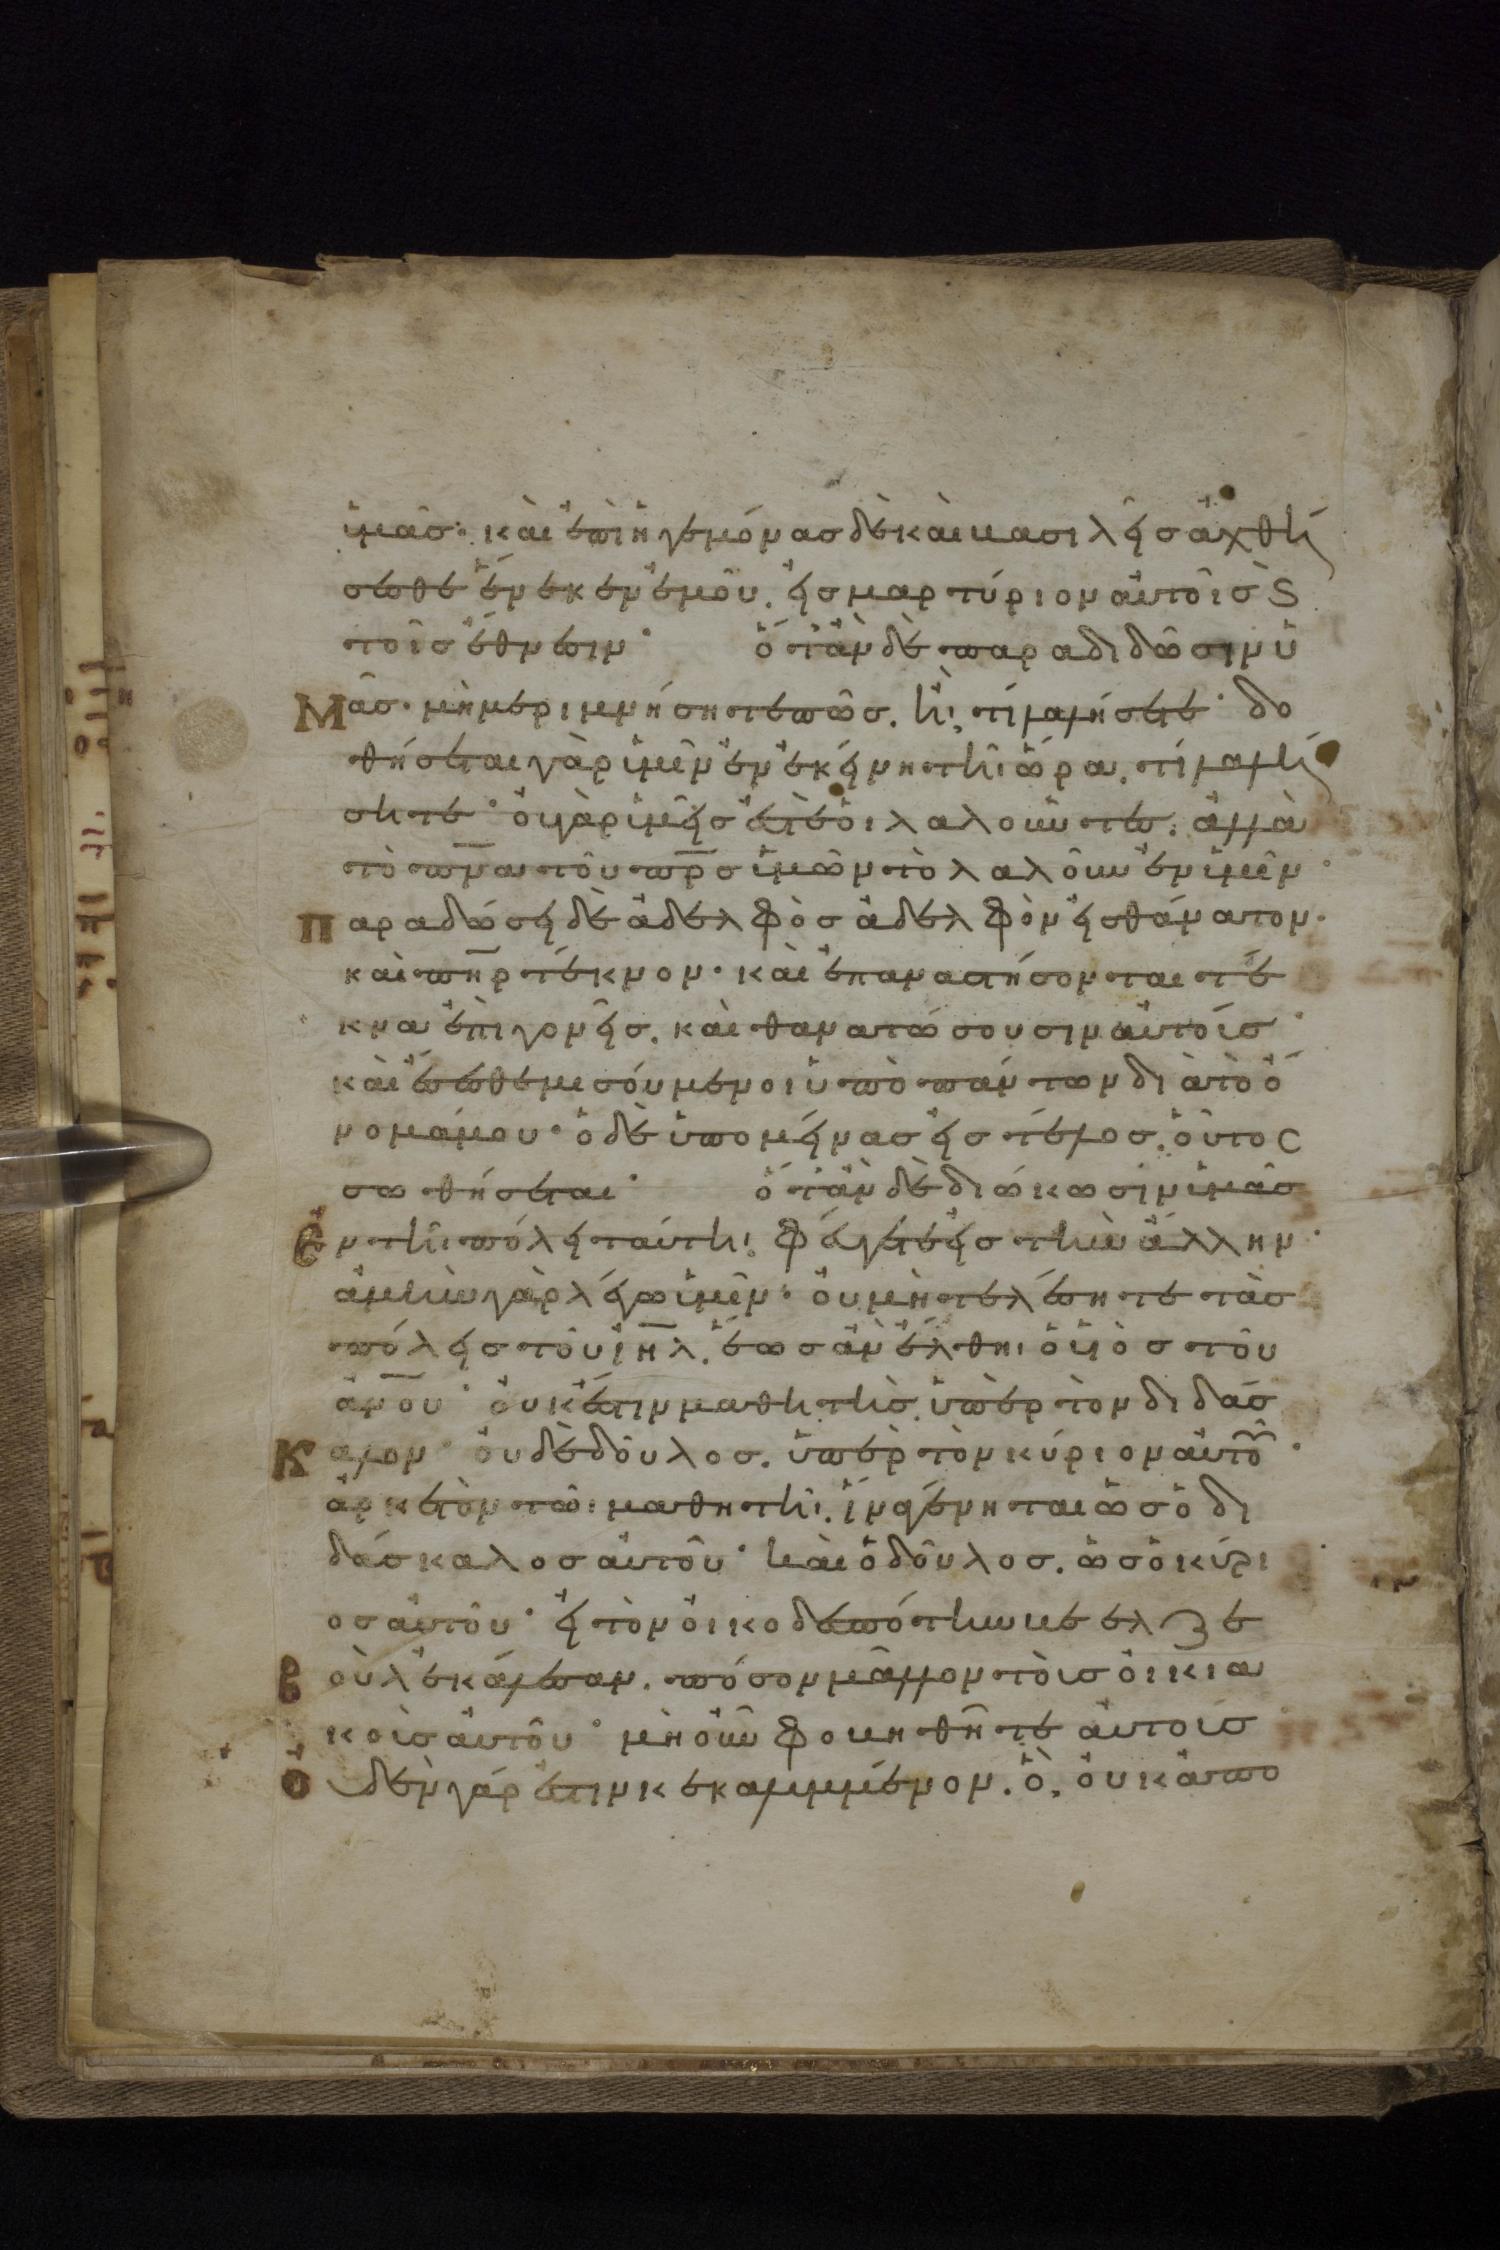 ὑμᾶσ· καὶ ἐπὶ ἡγεμόνασ δὲ καὶ βασιλεῖσ ἀχθή
σεσθε ἕνεκεν ἐμοῦ. εἰσ μαρτύριον αὐτοῖσ ϗ
τοῖσ ἔθνεσιν· ὅτἂν δὲ παραδιδῶσιν ὑ
Μᾶσ· μὴ μεριμνήσητε πῶσ. ἢ, τί λαλήσετε· δο
θήσεται γὰρ ὑμῖν ἐν ἐκείνη τῆι ὥρα. τί λαλή
σητε· οὐ γὰρ ὑμεῖσ ἐστὲ οἱ λαλοῦντεσ. ἀλλὰ
τὸ πν̅α τοῦ πρ̅σ ὑμῶν τὸ λαλοῦν ἐν ὑμῖν·
Παραδώσει δὲ ἀδελφὸσ ἀδελφὸν εἰσ θάνατον·
καὶ πη̅ρ τέκνον· καὶ ἐπαναστήσονται τέ
κνα ἐπὶ γονεῖσ. καὶ θανατώσουσιν αὐτοίσ·
καὶ ἔσεσθε μισούμενοι ὑπὸ πάντων διὰ τὸ ὄ
νομά μου· ὁ δὲ ὑπομείνασ εἰσ τέλοσ. οὗτος
σωθήσεται· ὅτἂν δὲ διώκωσιν ὑμᾶσ
Ἐν τῆι πόλει ταύτηι. φεύγετε εἰσ τὴν ἄλλην·
ἀμὴν γὰρ λέγω ὑμῖν· οὐ μὴ τελέσητε τὰσ
πόλεισ τοῦ ιη̅λ. ἕωσ ἂν ἔλθηι ὁ υἱὸσ τοῦ
ἀν̅ου· οὐκ ἔστιν μαθητὴσ. ὑπὲρ τὸν διδάσ
Καλον· οὐδὲ δοῦλοσ. ὑπὲρ τὸν κύριον αὐτοῦ·
ἀρκετὸν τῶι μαθητῆι. ἵνα γένηται ὡσ ὁ δι
δάσκαλοσ αὐτοῦ· καὶ ὁ δοῦλοσ. ὡσ ὁ κύρι
οσ αὐτοῦ· εἰ τὸν οἰκοδεσπότην βεελζε
Βοὺλ ἐκάλεσαν. πόσον μᾶλλον τοὶσ οἰκια
κοὶσ αὐτοῦ· μὴ οὖν φοβηθῆτε αὐτοισ
Ὀυδὲν γάρ ἐστιν κεκαλυμμένον. ὃ, οὐκ ἀπο